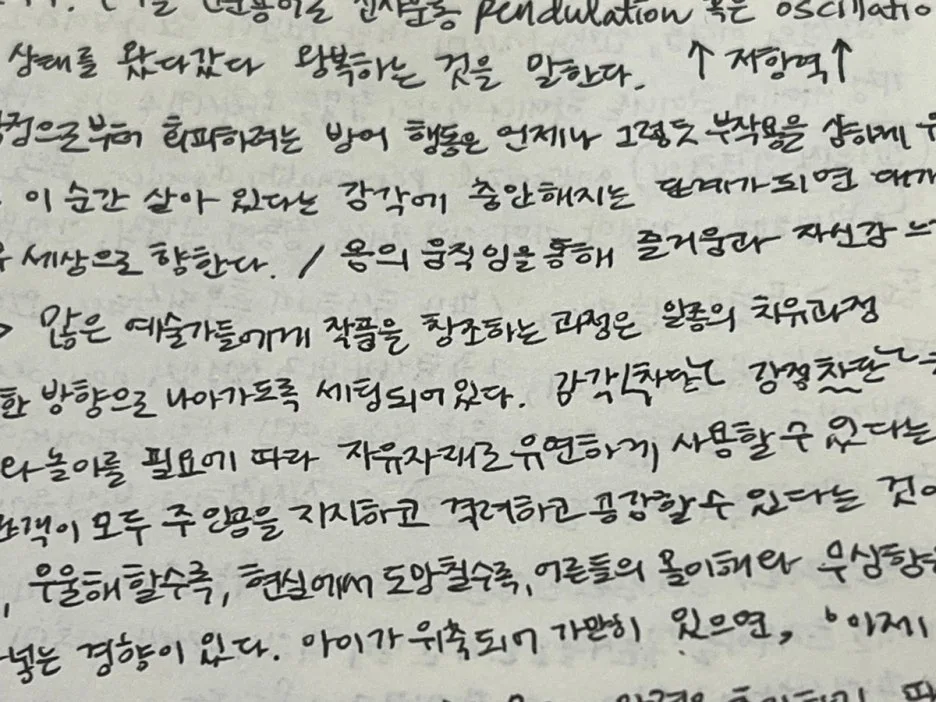 pendulation 혹은 oscillatio
상태를 왔다갔다 왕복하는 것을 말한다. ↑ 저항력↑
으로부터 회피하려는 방어 행동은 언제나 그렇듯 부작용을 상하게
이 순간 살아 있다는 감각에 중안해지는 단계가 되면
세상으로 향한다. / 몸의 움직임을 통해 즐거움과 자신감 느
많은 예술가들에게 작품을 창조하는 과정은 일종의 치유과정
한 방향으로 나아가도록 세팅되어 있다. 감각차단 감정차단
와 놀이를 필요에 따라 자유자재로 유연하게 사용할 수 있다는
관객이 모두 주인공을 지지하고 격려하고 공감할 수 있다는 것이
, 우울해할수록, 현실에서 도망칠수록, 어른들의 몰이해와
넣는 경향이 있다. 아이가 위축되어 가만히 있으면, '이제